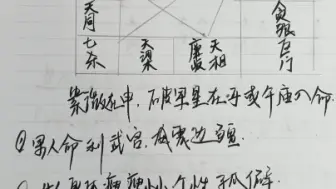 天同 贪狼
七杀 天梁 廉贞 天相 巨门
紫微在申,破军星在子或午 入命.
①男人命利武官,威震边疆.
个性孤僻.